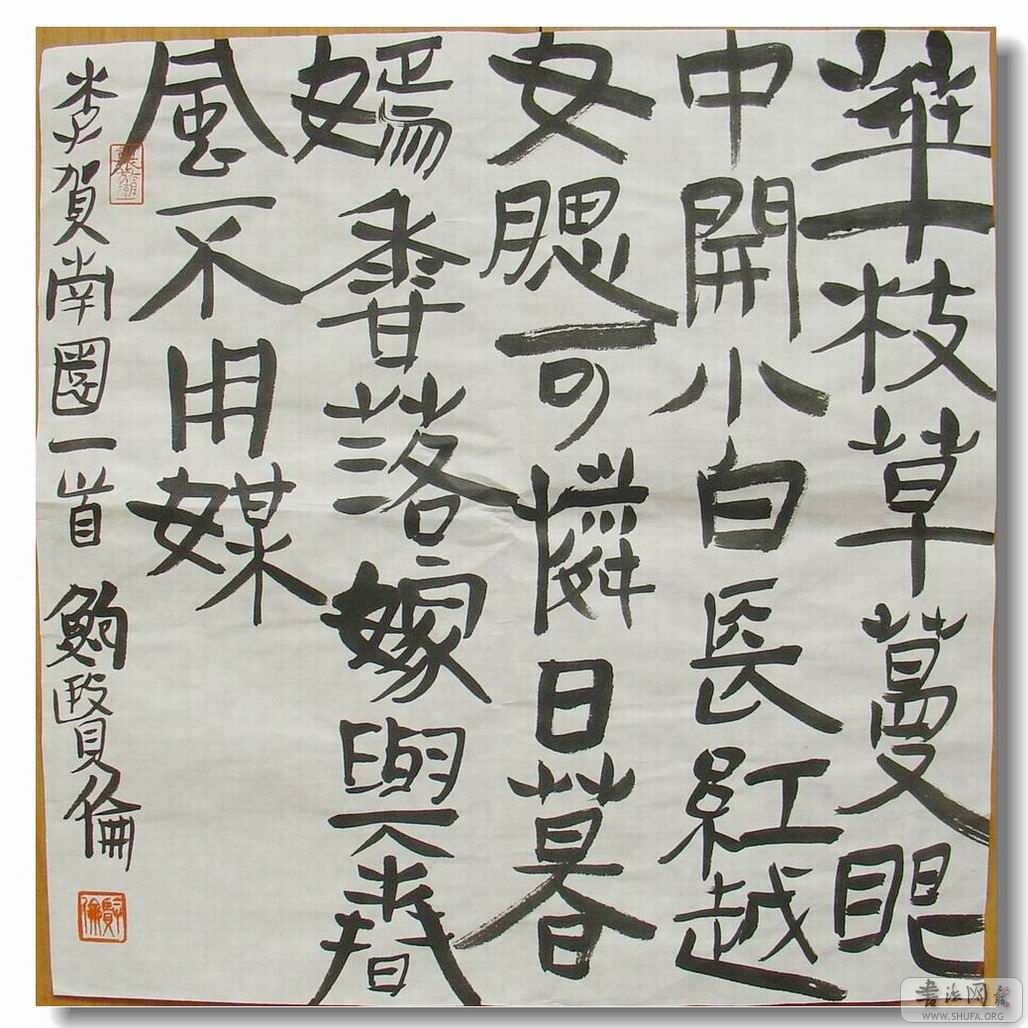 華枝草蔓眼
中開小白長紅越
女腮可憐日暮
嫣香落嫁與春
風不用媒
李賀南園一首 鮑賢倫
賢倫
书法网
WWW.SHUFA.ORG